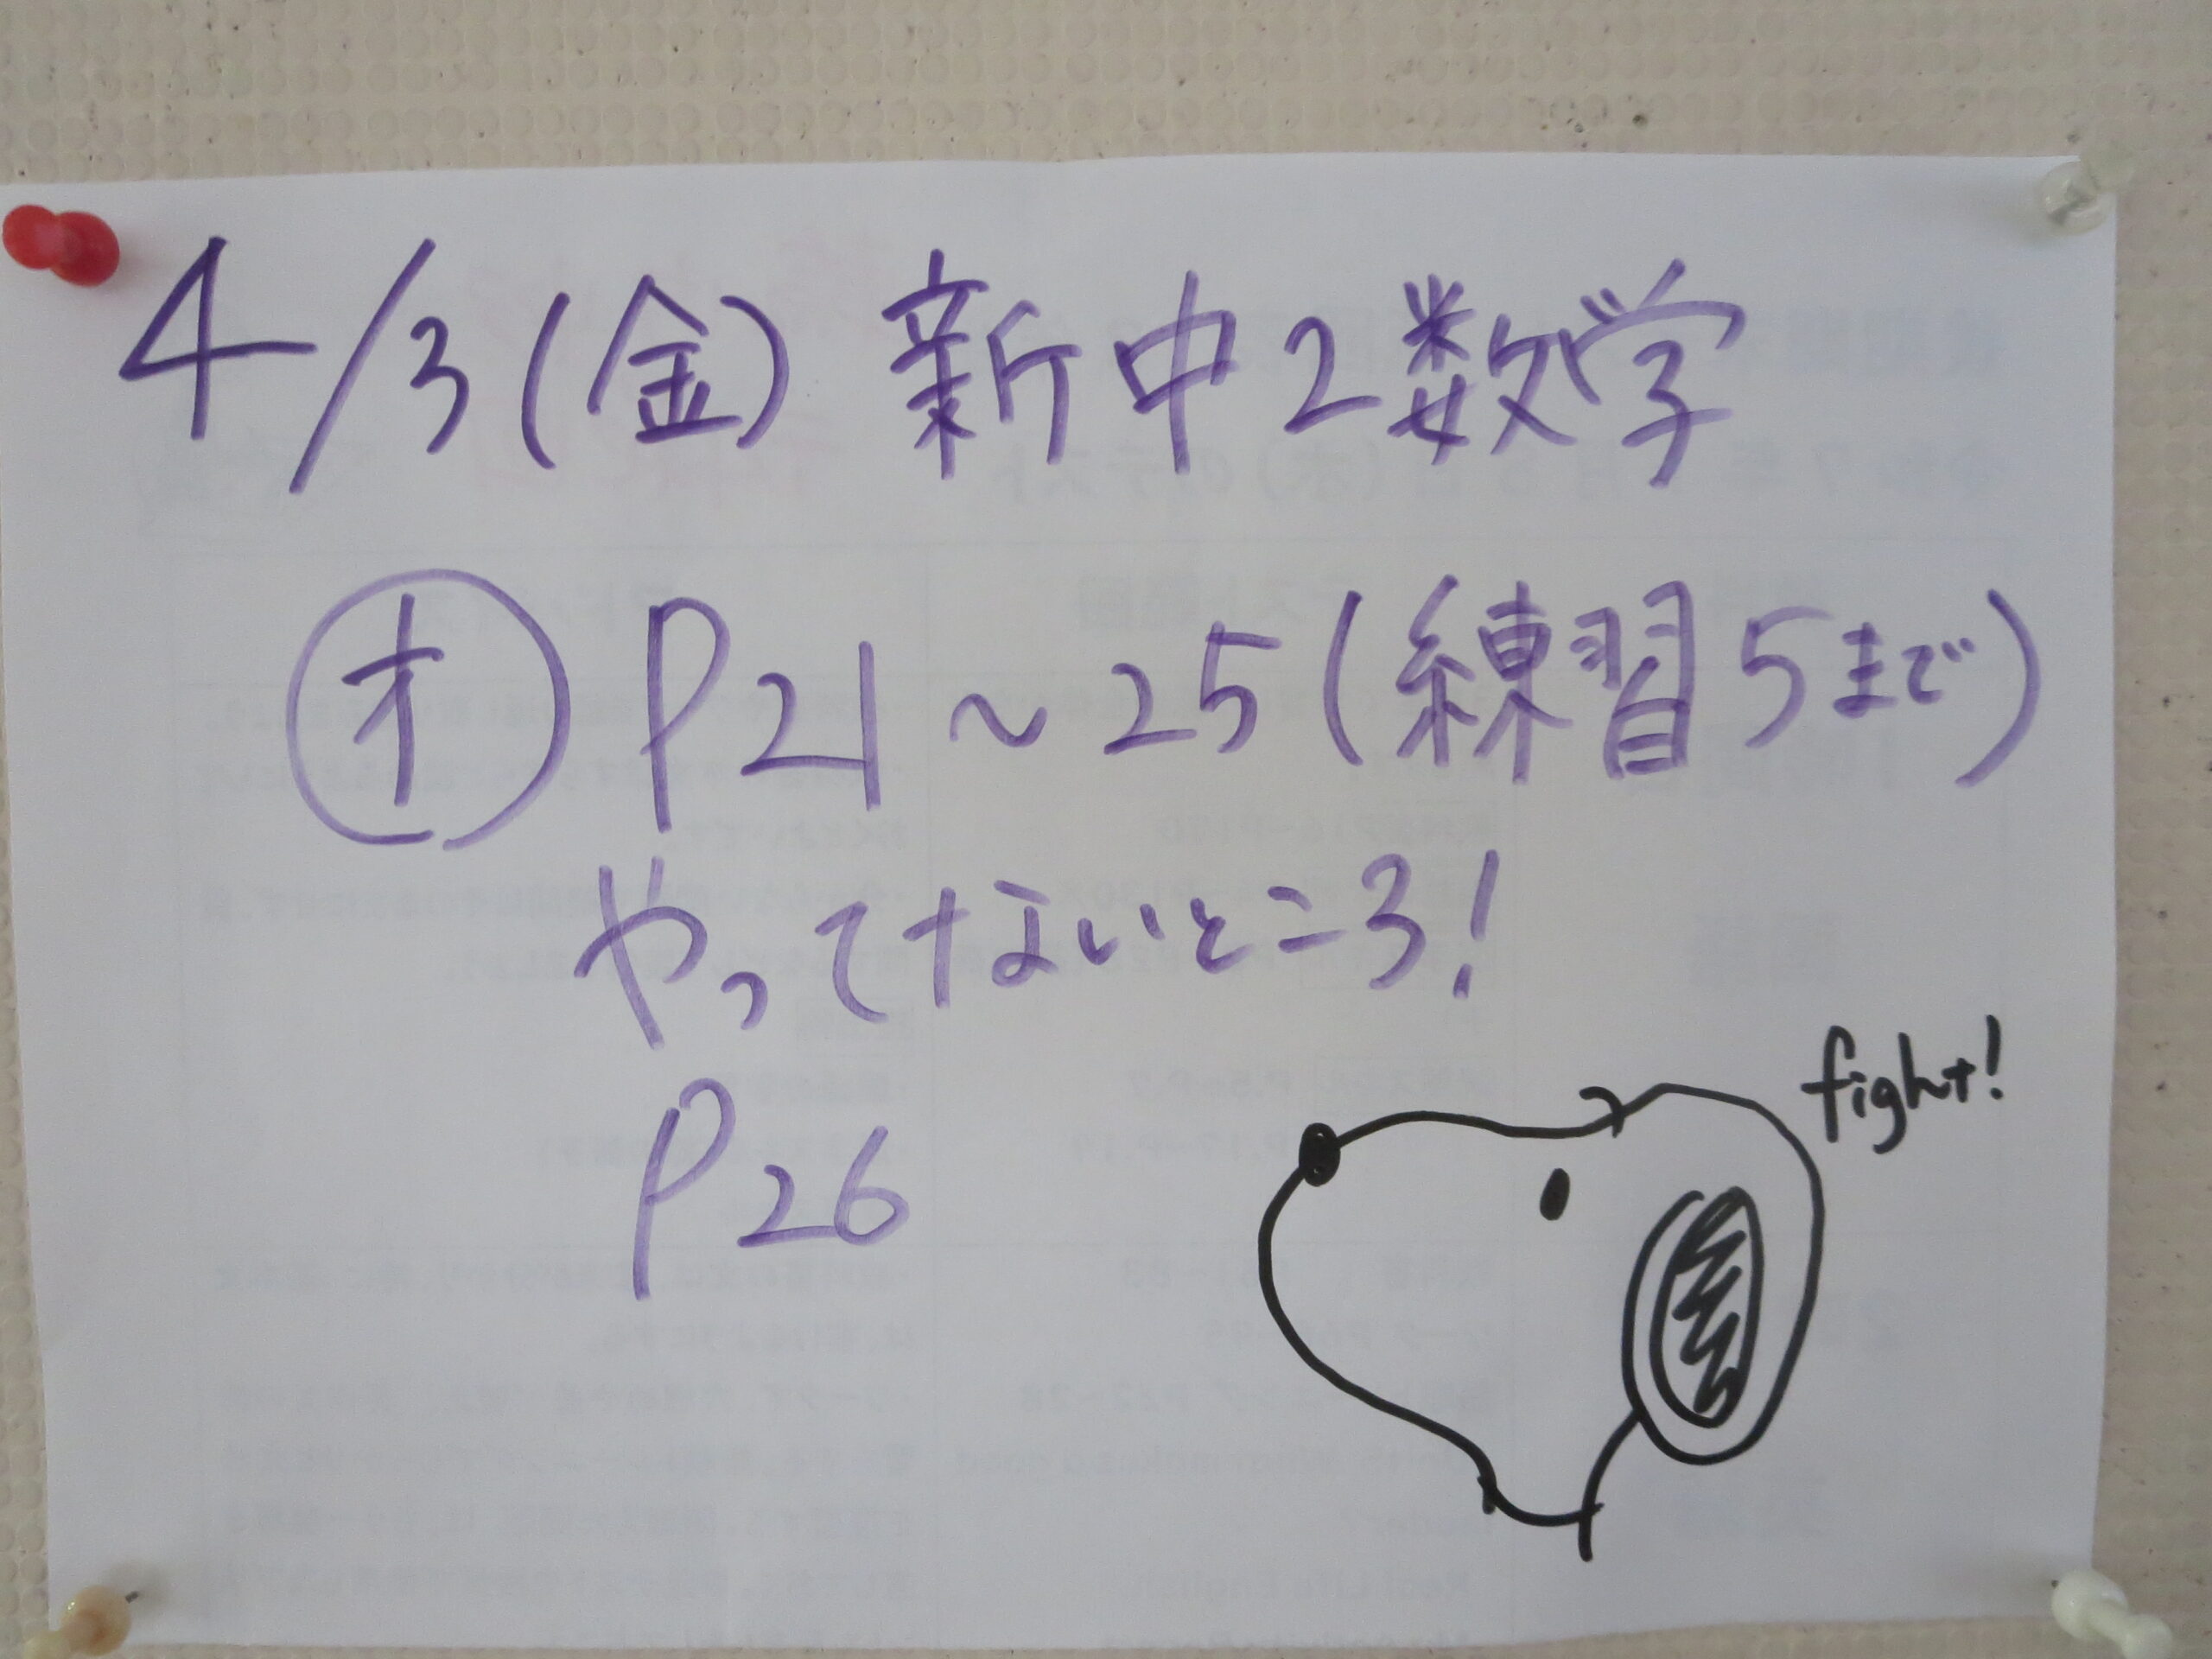 4/3(金) 新中2数学
オ P21~25(練習5まで)
やってないところ!
P26
fight!